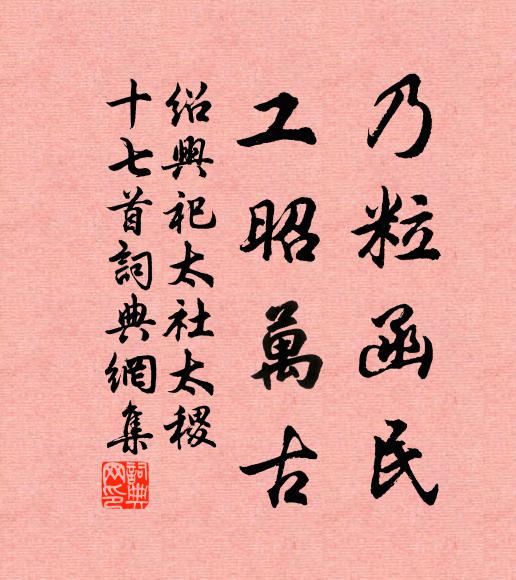 乃粒函民
工昭萬古
紹興祀太社太稷
十七首詞典網集
詞典
网印